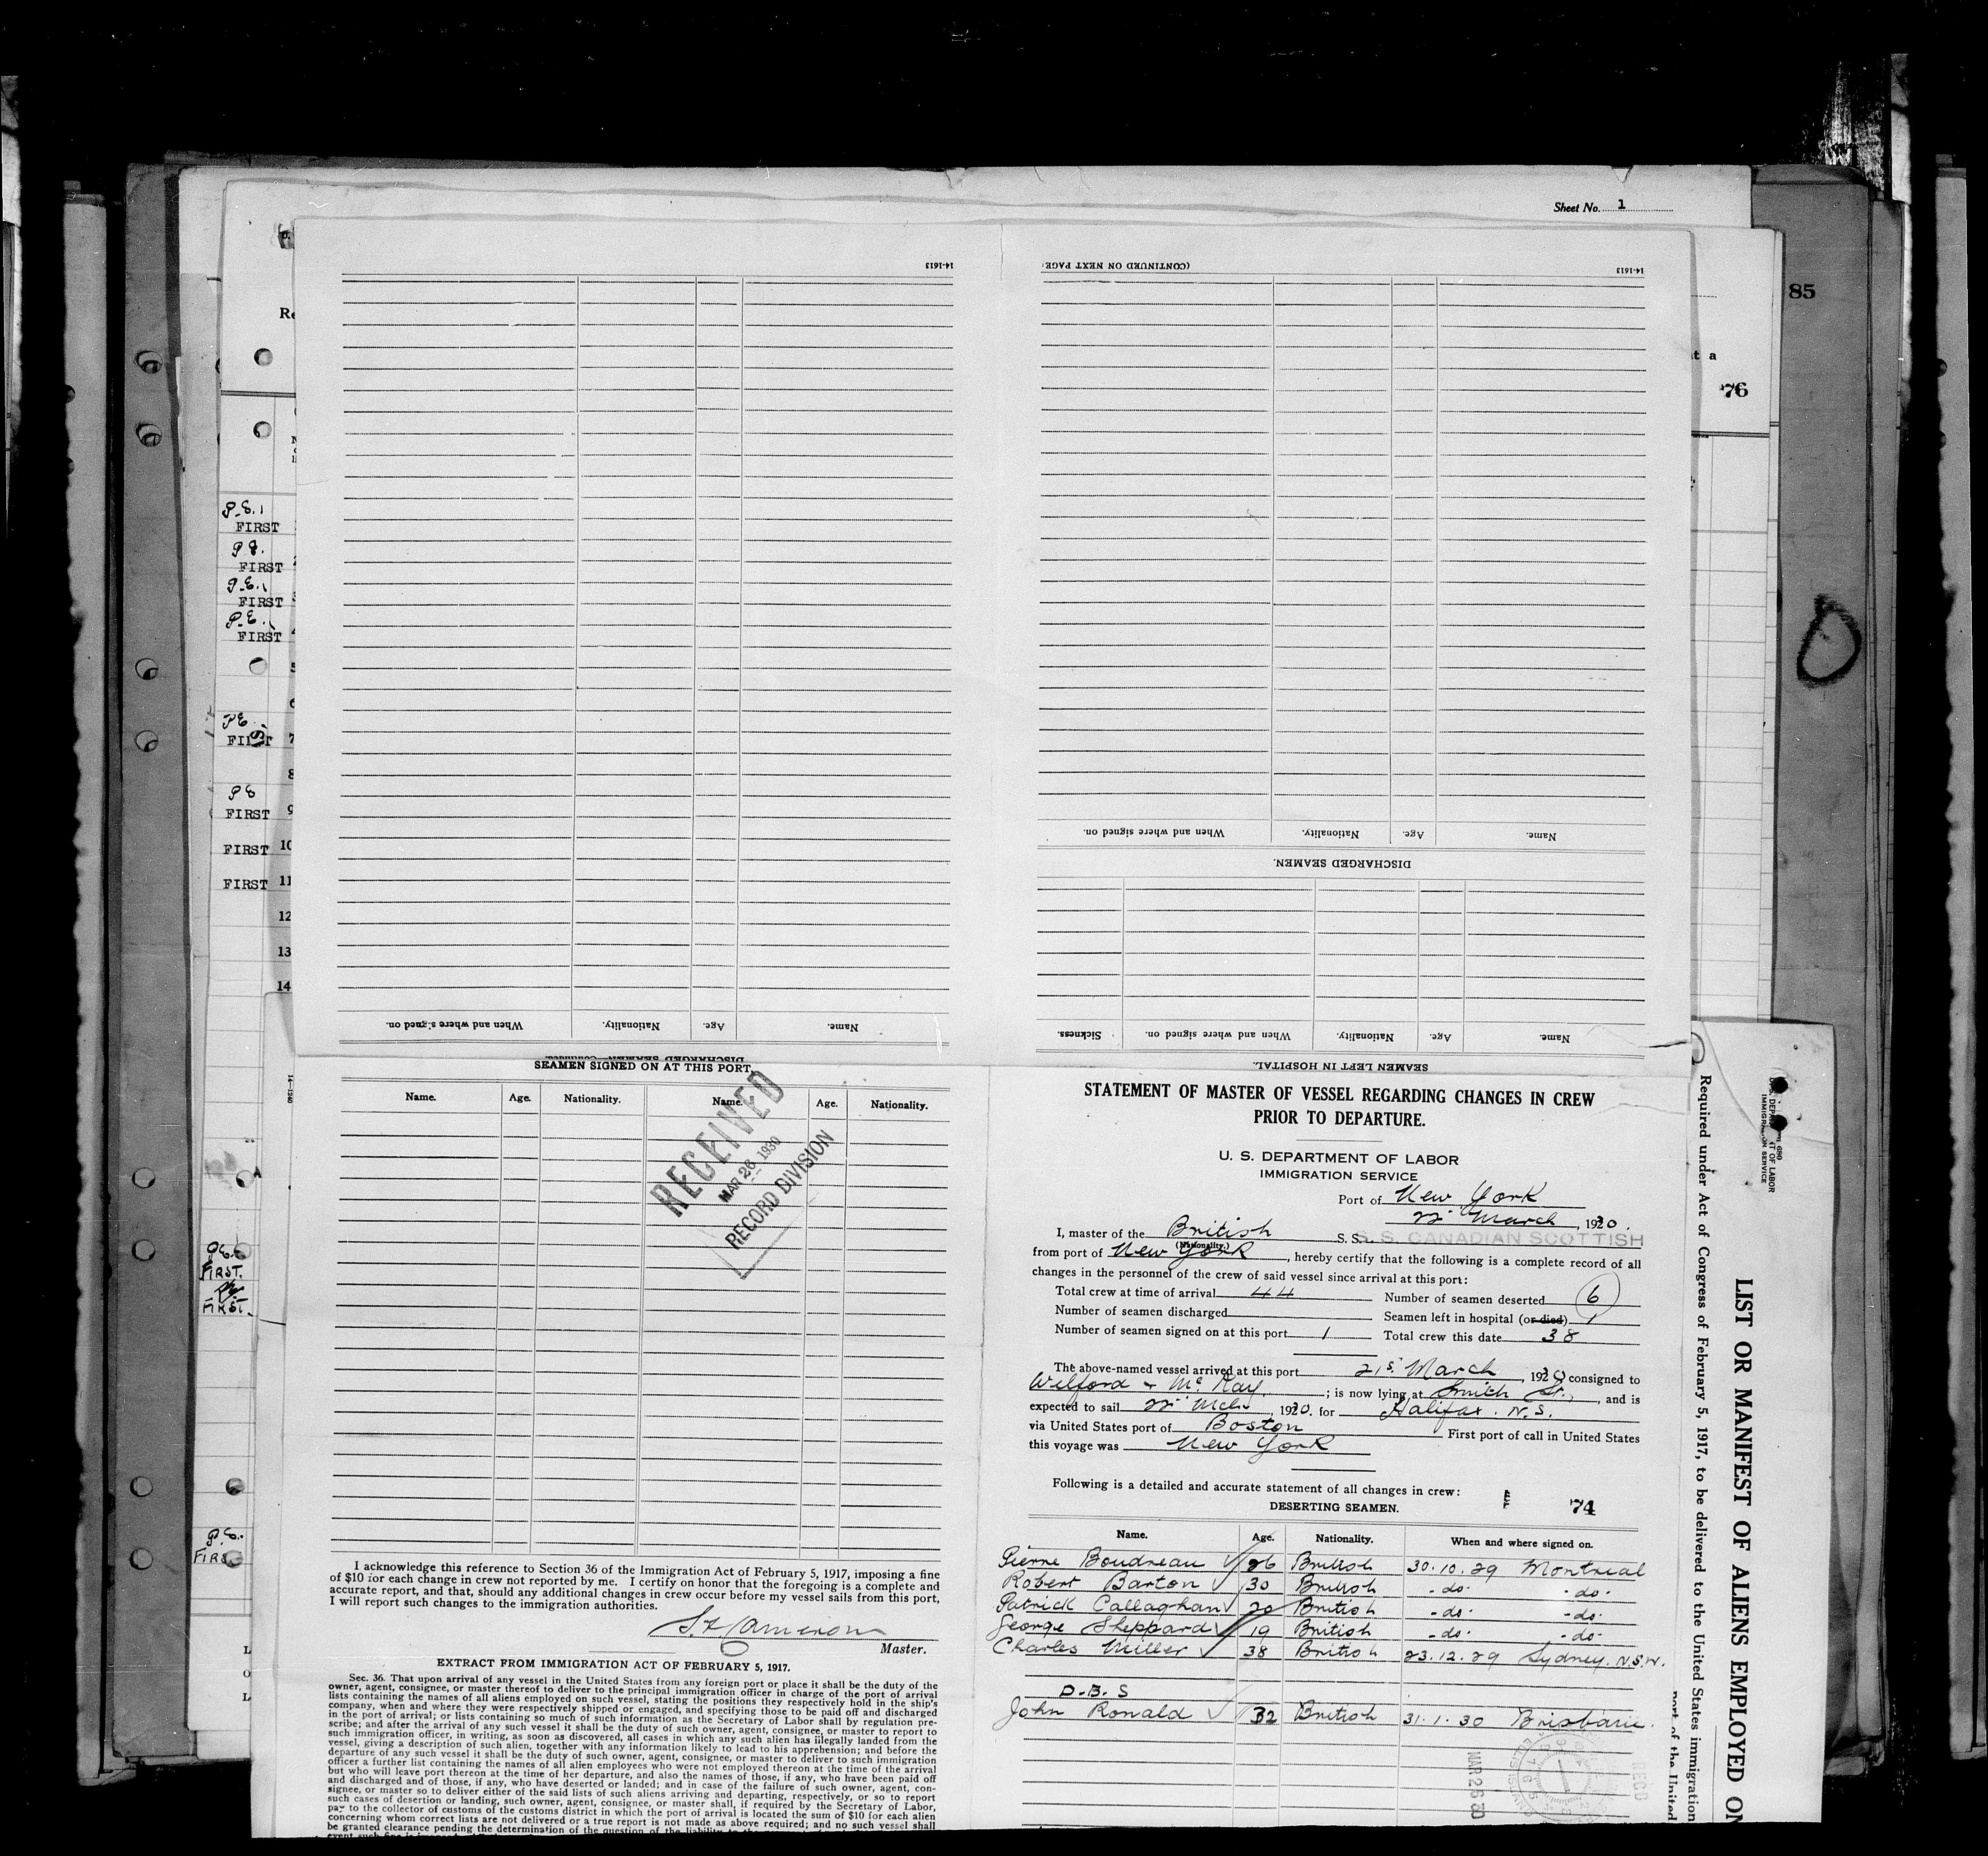 Sheet No. 1
85
t a
76
Re
14-1613
(CONTINUED ON NEXT PAGE)
14-1613
P.E.
FIRST
P.E.
FIRST
P.E.
FIRST
P.E.
FIRST
5
6
P.E.
FIRST 7
8
P E
FIRST 9
FIRST 10
FIRST 11
12
13
14
When and where signed on. Nationality. Age. Name.
DISCHARGED SEAMEN.
Sickness. When and where signed on. Nationality. Age. Name.
SEAMEN LEFT IN HOSPITAL.
When and where signed on. Nationality. Age. Name.
DISCHARGED SEAMEN—Continued.
14-1240
FIRST.
FIRST.
P.E.
SEAMEN SIGNED ON AT THIS PORT.
Name. Age. Nationality. Name. Age. Nationality.
RECEIVED
MAR 26 1930
RECORD DIVISION
I acknowledge this reference to Section 36 of the Immigration Act of February 5, 1917, imposing a fine
of $10 for each change in crew not reported by me. I certify on honor that the foregoing is a complete and
accurate report, and that, should any additional changes in crew occur before my vessel sails from this port,
I will report such changes to the immigration authorities.
Cameron
Master.
EXTRACT FROM IMMIGRATION ACT OF FEBRUARY 5, 1917.
Sec. 36. That upon arrival of any vessel in the United States from any foreign port or place it shall be the duty of the
owner, agent, consignee, or master thereof to deliver to the principal immigration officer in charge of the port of arrival
lists containing the names of all aliens employed on such vessel, stating the positions they respectively hold in the ship's
company, when and where they were respectively shipped or engaged, and specifying those to be paid off and discharged
in the port of arrival; or lists containing so much of such information as the Secretary of Labor shall by regulation pre-
scribe; and after the arrival of any such vessel it shall be the duty of such owner, agent, consignee, or master to report to
such immigration officer, in writing, as soon as discovered, all cases in which any such alien has illegally landed from the
vessel, giving a description of such alien, together with any information likely to lead to his apprehension; and before the
departure of any such vessel it shall be the duty of such owner, agent, consignee, or master to deliver to such immigration
officer a further list containing the names of all alien employees who were not employed thereon at the time of the arrival
but who will leave port thereon at the time of her departure, and also the names of those, if any, who have been paid off
and discharged and of those, if any, who have deserted or landed; and in case of the failure of such owner, agent, con-
signee, or master so to deliver either of the said lists of such aliens arriving and departing, respectively, or so to report
such cases of desertion or landing, such owner, agent, consignee, or master shall, if required by the Secretary of Labor,
pay to the collector of customs of the customs district in which the port of arrival is located the sum of $10 for each alien
concerning whom correct lists are not delivered or a true report is not made as above required; and no such vessel shall
be granted clearance pending the determination of the question of the liability to the
STATEMENT OF MASTER OF VESSEL REGARDING CHANGES IN CREW
PRIOR TO DEPARTURE.
U. S. DEPARTMENT OF LABOR
IMMIGRATION SERVICE
Port of New York
22" March, 1930.
I, master of the British S. S. S. S. CANADIAN SCOTTISH
(Nationality.)
from port of New York, hereby certify that the following is a complete record of all
changes in the personnel of the crew of said vessel since arrival at this port:
Total crew at time of arrival 44 Number of seamen deserted 6
Number of seamen discharged Seamen left in hospital (or died) 1
Number of seamen signed on at this port 1 Total crew this date 38
The above-named vessel arrived at this port 21st March, 1930 consigned to
Wilford & McKay.; is now lying at Smith St., and is
expected to sail 22" Mch., 1930. for Halifax. N.S.
via United States port of Boston First port of call in United States
this voyage was New York
Following is a detailed and accurate statement of all changes in crew:
DESERTING SEAMEN.
74
Name. Age. Nationality. When and where signed on.
Pierre Boudreau 26 British 30.10.29 Montreal
Robert Barton 30 British -do- -do-
Patrick Callaghan 20 British -do- -do-
George Sheppard 19 British -do- -do-
Charles Miller 38 British 23.12.29 Sydney. N.S.W.
D.B.S
John Ronald 32 British 31.1.30 Brisbane.
MAR 26 30
REC'D
LIST OR MANIFEST OF ALIENS EMPLOYED ON
Required under Act of Congress of February 5, 1917, to be delivered to the United States immigration
port of the United
680
DEPARTMENT OF LABOR
IMMIGRATION SERVICE